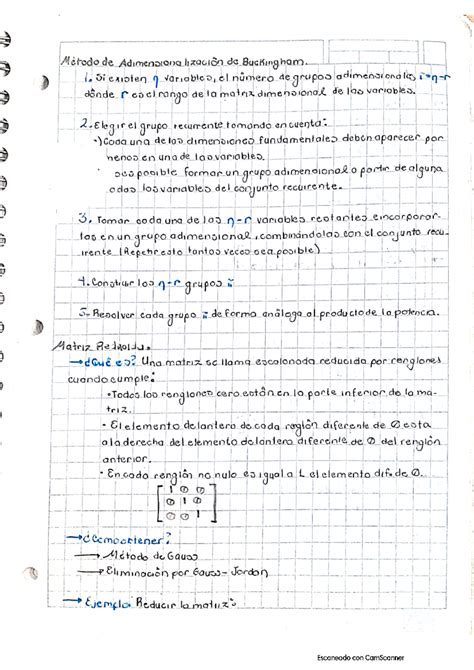 Método de Adimensionalización de Buckingham.
1. Si existen η variables, el número de grupos adimensionales i=η-r
dónde r es el rango de la matriz dimensional de las variables.
2. Elegir el grupo recurrente tomando en cuenta:
·) Cada una de las dimensiones fundamentales deben aparecer por
menos en una de las variables.
posible formar un grupo adimensional a partir de alguna
o das las variables del conjunto recurrente.
3. Tomar cada una de las η-r variables restantes e incorporar-
las en un grupo adimensional, combinándolas con el conjunto recu-
rrente (Repetir esto tantas veces sea posible)
4. Construir los η-r grupos
5- Resolver cada grupo de forma análoga al producto de la potencia.
Matriz Reducida.
→¿Qué es? Una matriz se llama escalonada reducida por renglones
cuando cumple:
·Todos los renglones cero están en la parte inferior de la ma-
triz.
· El elemento delantero de cada renglón diferente de 0 esta
a la derecha del elemento delantero diferente de 0 del renglón
anterior.
· En cada renglón no nulo es igual a 1 el elemento dif. de 0.
1 0 0
0 1 0
0 0 1
→¿Como obtener?
→ Método de Gauss
→ Eliminación por Gauss-Jordan
→ Ejemplo: Reducir la matriz:
Escaneado con CamScanner